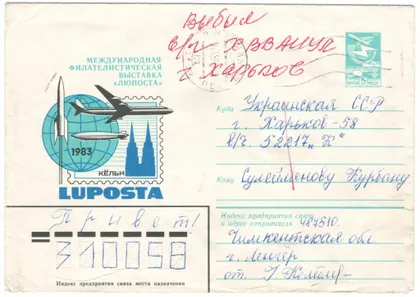 Выбыл
в/ч ХВВАИУС
г. ХАРЬКОВ
МЕЖДУНАРОДНАЯ
ФИЛАТЕЛИСТИЧЕСКАЯ
ВЫСТАВКА
«ЛЮПОСТА»
1983
КЁЛЬН
LUPOSTA
Куда Украинская ССР
г. Харьков-58
в/ч. 52217 "К"
Кому Сулейменову Курбану
Привет!
310058
Индекс предприятия связи места назначения
Индекс предприятия связи
и адрес отправителя 484610.
Чимкентская обл
г. Ленгер
от.